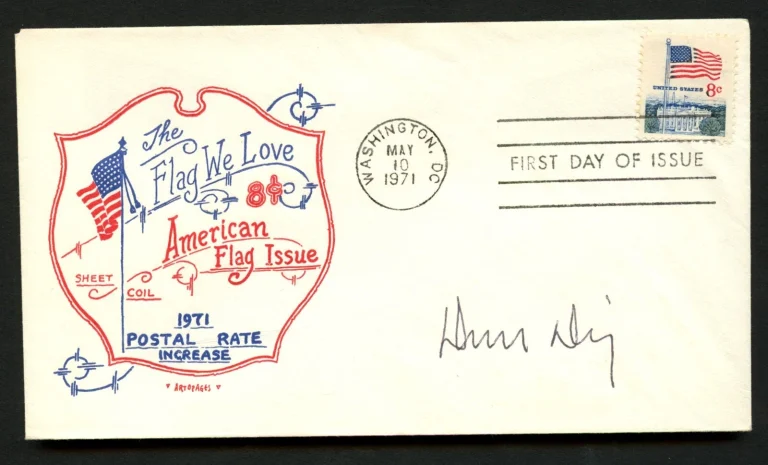 The
Flag We Love
8¢
American
Flag Issue
SHEET
COIL
1971
POSTAL RATE
INCREASE
ARTOPAGES
WASHINGTON, DC
MAY
10
1971
UNITED STATES 8c
FIRST DAY OF ISSUE